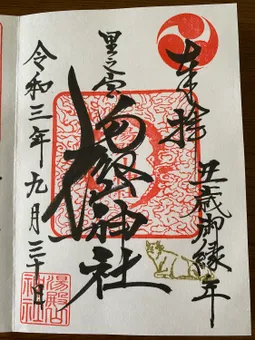 奉拝
丑歳御縁年
里之宮
湯殿山神社
令和三年九月三十日
湯殿山神社